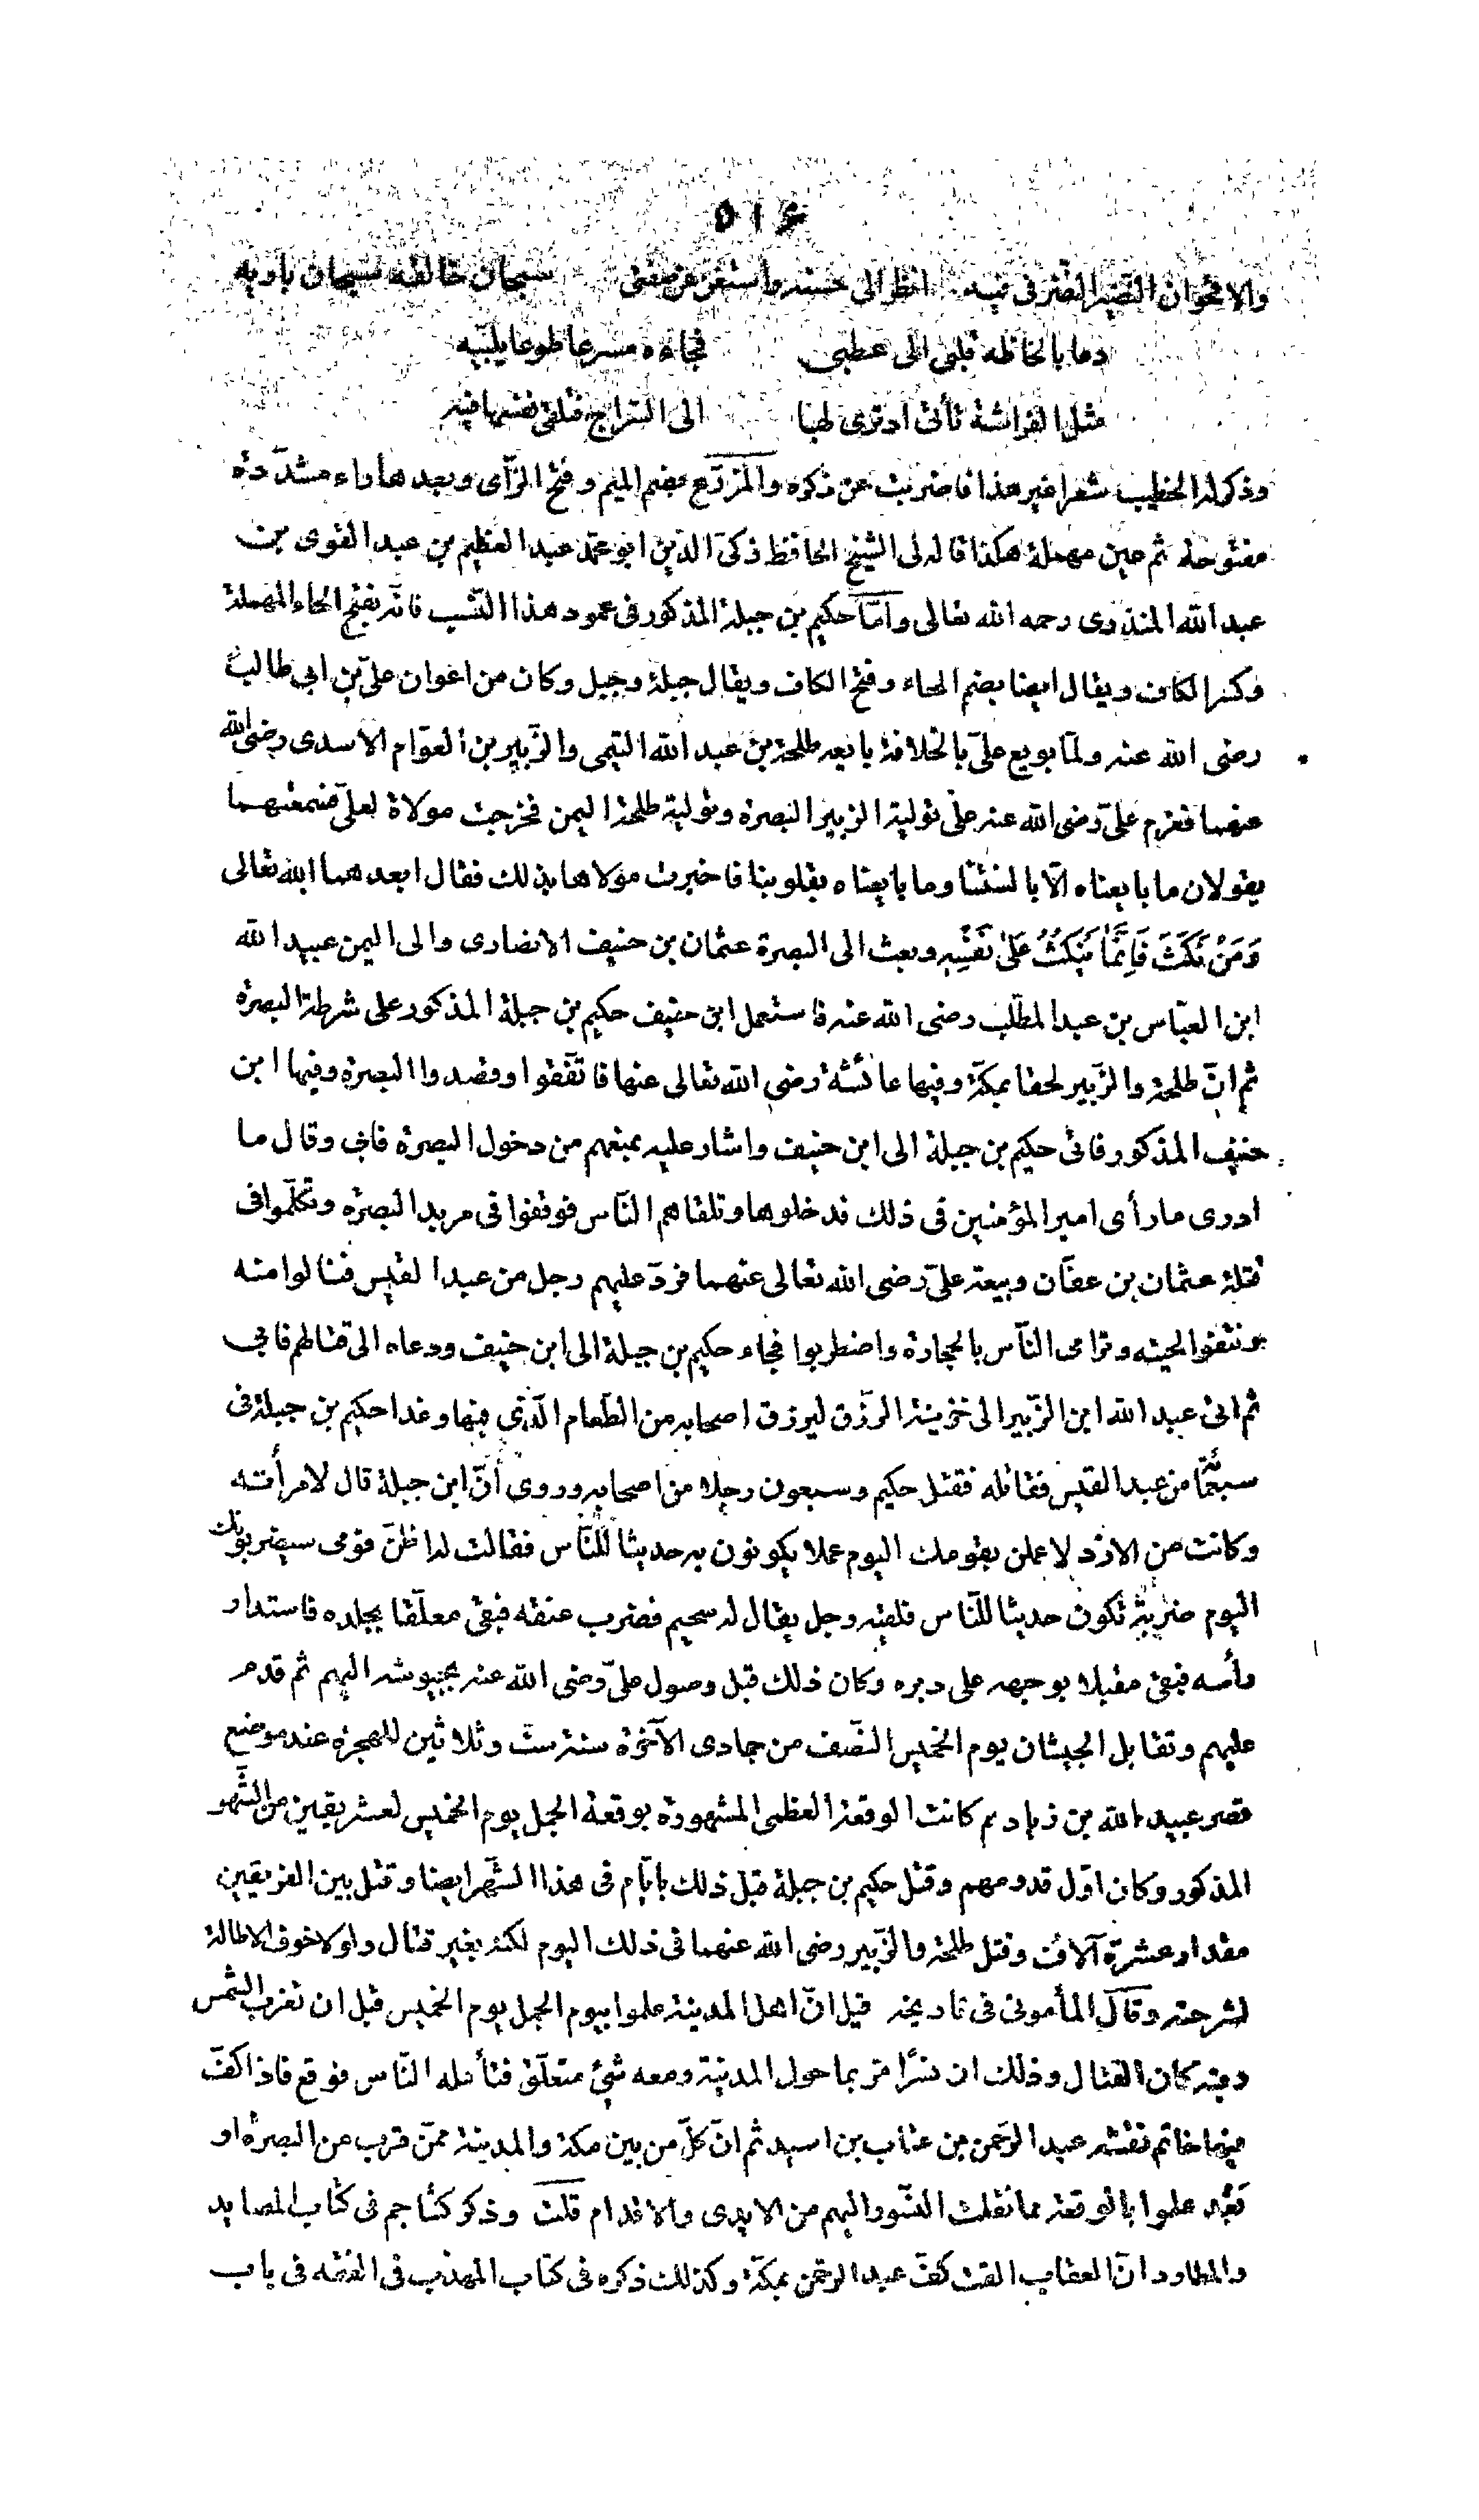 ٥١۴
والاقحوان النضير النضر في فيه انظر الى حسنه واستغن عن صفتي سبحان خالقه سبحان باريه
دعا بالحاظه قلبي الى عطبي فجاءه مسرعا طوعا يلبيه
مثل الفراشة تأتي اذ ترى لهبا الى السراج فتلقي نفسها فيه
وذكر له الخطيب شعرا غير هذا فاضربت عن ذكره والمزرّع بضم الميم وفتح الزّاى وبعدها راء مشدّدة
مفتوحة ثم عين مهملة هكذا قاله لى الشيخ الحافظ زكىّ الدّين ابو محمّد عبد العظيم بن عبد القوى بن
عبد الله المنذرى رحمه الله تعالى وامّا حكيم بن جبلة المذكور فى عمود هذا النّسب فانّه بفتح الحاء المهملة
وكسر الكاف ويقال ايضا بضم الحاء وفتح الكاف ويقال جبلة وجبل وكان من اعوان علىّ بن ابى طالب
رضى الله عنه ولمّا بويع علىّ بالخلافة بايعه طلحة بن عبد الله التيمى والزّبير بن العوّام الاسدى رضى الله
عنهما فعزم علىّ رضى الله عنه على تولية الزبير البصرة وتولية طلحة اليمن فخرجت مولاة لعلىّ فسمعتهما
يقولان ما بايعناه الّا بالسنتنا وما بايعناه بقلوبنا فاخبرت مولاها بذلك فقال ابعدهما الله تعالى
وَمَنْ نَكَثَ فَاِنَّمَا يَنكُثُ عَلَىٰ نَفْسِهِ وبعث الى البصرة عثمان بن حنيف الانصارى والى اليمن عبيد الله
ابن العبّاس بن عبد المطّلب رضى الله عنه فاستعمل ابن حنيف حكيم بن جبلة المذكور على شرطة البصرة
ثم انّ طلحة والزّبير لحقا بمكّة وفيها عائشة رضى الله تعالى عنها فاتّفقوا وقصدوا البصرة وفيها ابن
حنيف المذكور فاتى حكيم بن جبلة الى ابن حنيف واشار عليه بمنعهم من دخول البصرة فابى وقال ما
ادرى ما رأى امير المؤمنين فى ذلك فدخلوها وتلقاهم النّاس فوقفوا فى مربد البصرة وتكلّموا فى
قتلة عثمان بن عفّان وبيعة علىّ رضى الله تعالى عنهما فردّ عليهم رجل من عبد القيس فنالوا منه
ونتفوا لحيته وترامى النّاس بالحجارة واضطربوا فجاء حكيم بن جبلة الى ابن حنيف ودعاه الى قتالهم فابى
ثم اتى عبد الله ابن الزّبير الى خزينة الرّزق ليرزق اصحابه من الطّعام الّذى فيها وغدا حكيم بن جبلة فى
سبعمائة من عبد القيس فقاتله فقتل حكيم وسبعون رجلا من اصحابه وروى أنّ ابن جبلة قال لامرأته
وكانت من الازد لاعملن بقومك اليوم عملا يكونون به حديثا للنّاس فقالت له اظنّ قومى سيضربونك
اليوم ضربة تكون حديثا للنّاس فلقيه رجل يقال له سحيم فضرب عنقه فبقى معلّقا بجلده فاستدار
رأسه فبقى مقبلا بوجهه على دبره وكان ذلك قبل وصول علىّ رضى الله عنه بجيوشه اليهم ثم قدم
عليهم وتقابل الجيشان يوم الخميس النّصف من جمادى الآخرة سنة ستّ وثلاثين للهجرة عند موضع
قصر عبيد الله بن زياد ثم كانت الوقعة العظمى المشهورة بوقعة الجمل يوم الخميس لعشر بقين من الشّهر
المذكور وكان اوّل قدومهم وقتل حكيم بن جبلة قبل ذلك بايّام فى هذا الشّهر ايضا وقتل بين الفريقين
مقدار عشرة آلاف وقتل طلحة والزّبير رضى الله عنهما فى ذلك اليوم لكنه بغير قتال ولولا خوف الاطالة
لشرحته وقال المأمونى فى تاريخه قيل انّ اهل المدينة علموا بيوم الجمل يوم الخميس قبل ان تغرب الشّمس
وفيه كان القتال وذلك ان نسرا مرّ بما حول المدينة ومعه شئ متعلّق فتأمله النّاس فوقع فاذا كفّ
فيها خاتم نقشه عبد الرّحمن بن عتاب بن اسيد ثم انّ كلّ من بين مكة والمدينة ممّن قرب من البصرة او
بَعُد علموا بالوقعة مما نقلت النّسور اليهم من الايدى والاقدام قلت وذكر كشاجم فى كتاب المصايد
والمطارد انّ العقاب القت كفّ عبد الرحمن بمكّة وكذلك ذكره فى كتاب المهذب فى الفقه فى باب